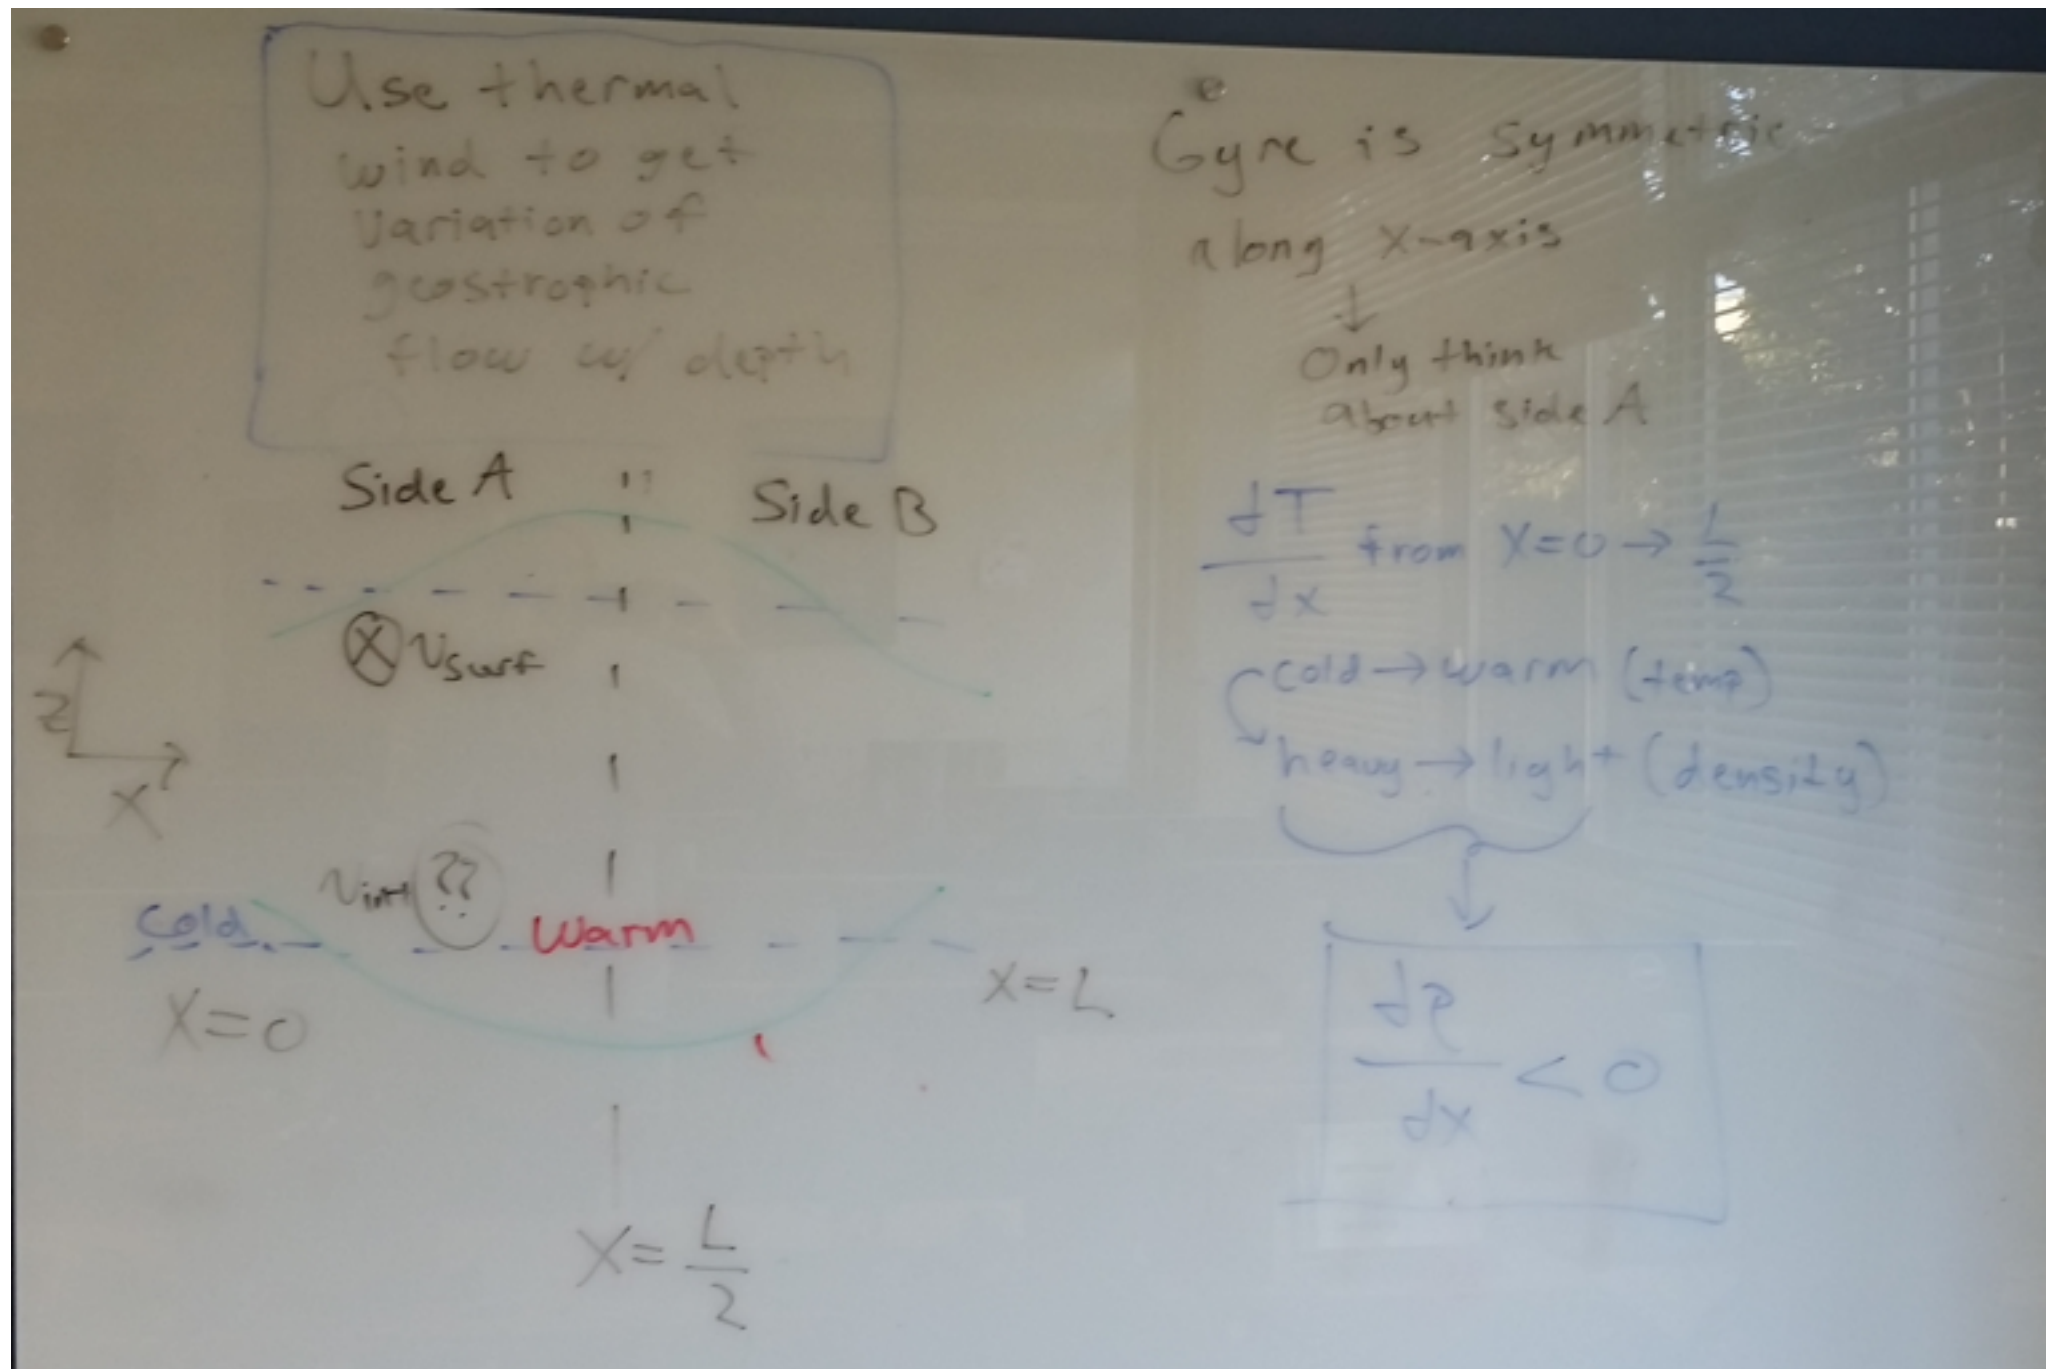 Use thermal
wind to get
variation of
geostrophic
flow w/ depth
Side A
Side B
⊗ v_surf
z
x
v_int ??
Cold
Warm
x=0
x=L
x=L/2
Gyre is symmetric
along x-axis
↓
Only think
about side A
dT/dx from x=0→L/2
cold→warm (temp)
heavy→light (density)
dρ/dx < 0